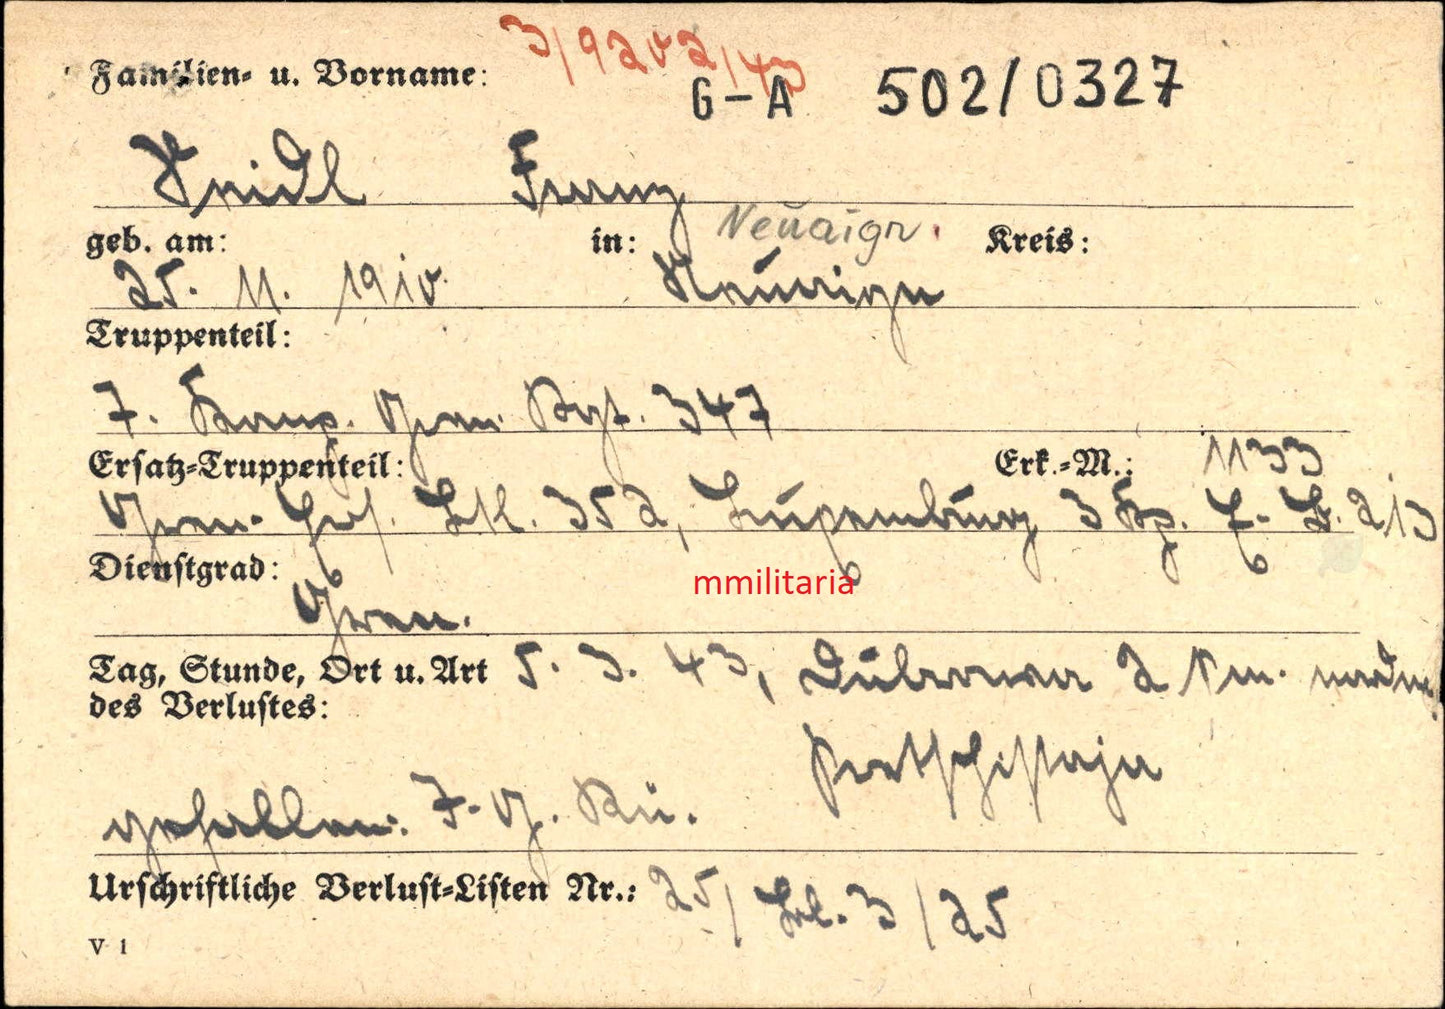 3/9202/43
Familien- u. Vorname:
G-A 502/0327
Franz
geb. am: in: Neuaign. Kreis:
25. 11. 1910. Neuaign
Truppenteil:
7. Komp. Gren. Rgt. 347
Ersatz-Truppenteil: Erk.-M.: 1133
Gren. Ers. Btl. 352, Luxemburg 3 Kp. L. 213
Dienstgrad:
mmilitaria
Gren.
Tag, Stunde, Ort u. Art 5. 3. 43, Dubrowa 2 km.
des Verlustes:
gefallen. I.-G. Ru.
Urschriftliche Verlust-Listen Nr.: 25/ 3/25
V 1